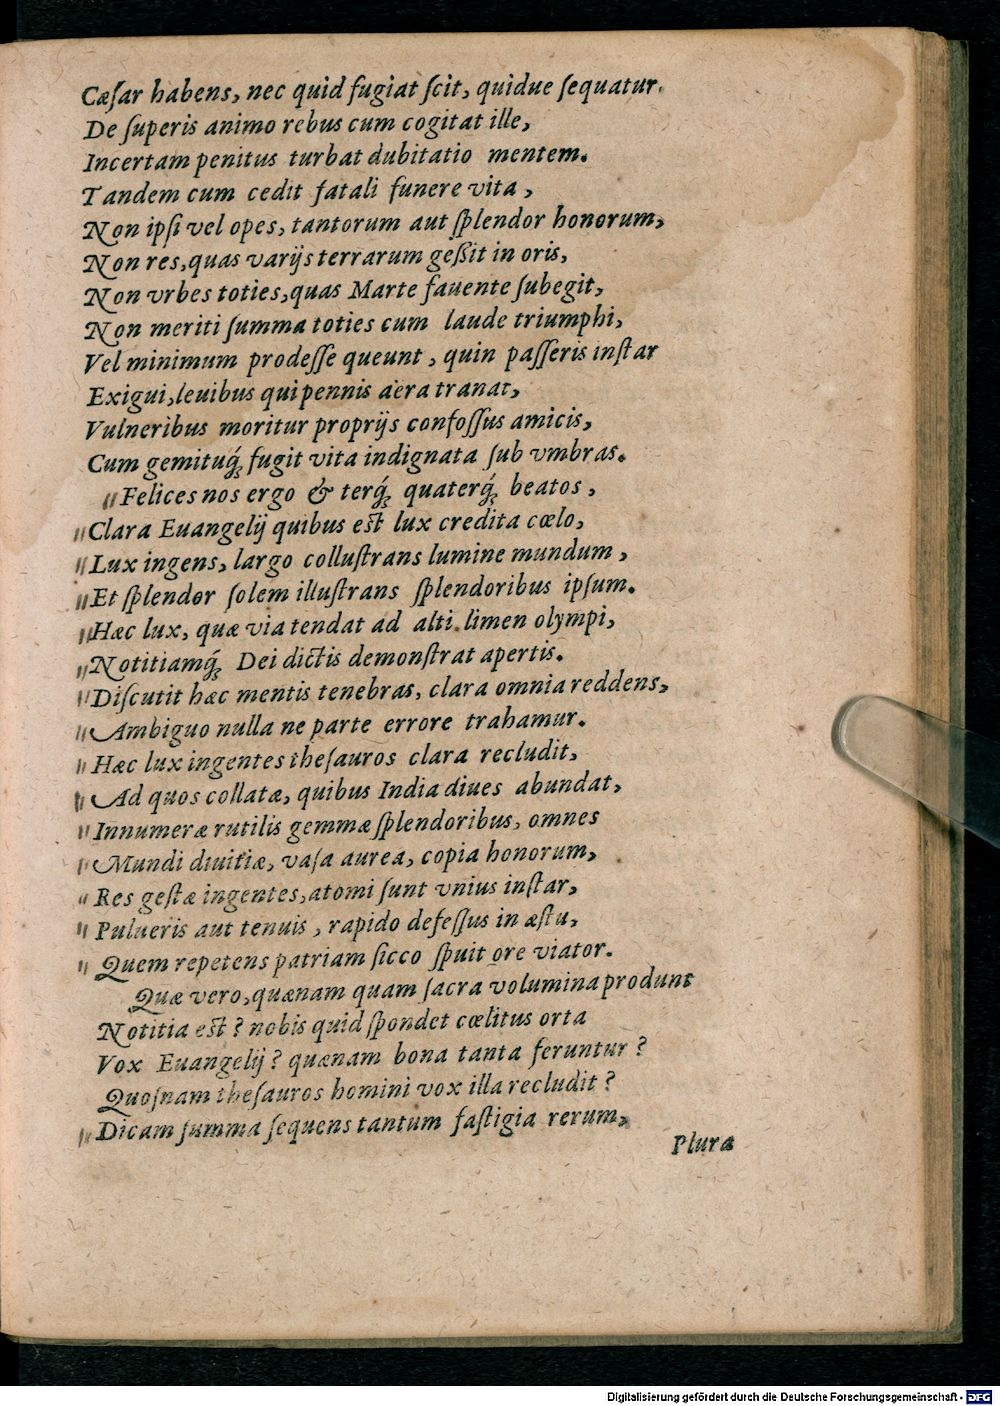 Cæſar habens, nec quid fugiat ſcit, quidue ſequatur.
De ſuperis animo rebus cum cogitat ille,
Incertam penitus turbat dubitatio mentem.
Tandem cum cedit fatali funere vita,
Non ipſi vel opes, tantorum aut ſplendor honorum,
Non res, quas varijs terrarum geßit in oris,
Non vrbes toties, quas Marte fauente ſubegit,
Non meriti ſumma toties cum laude triumphi,
Vel minimum prodeſſe queunt, quin paſſeris inſtar
Exigui, leuibus qui pennis aëra tranat,
Vulneribus moritur proprijs confoſſus amicis,
Cum gemituq́ꝫ fugit vita indignata ſub vmbras.
„Felices nos ergo & terq́ꝫ quaterq́ꝫ beatos,
„Clara Euangelij quibus est lux credita cœlo,
„Lux ingens, largo colluſtrans lumine mundum,
„Et ſplendor ſolem illuſtrans ſplendoribus ipſum.
„Hæc lux, quæ via tendat ad alti limen olympi,
„Notitiamq́ꝫ Dei dictis demonſtrat apertis.
„Diſcutit hæc mentis tenebras, clara omnia reddens,
„Ambiguo nulla ne parte errore trahamur.
„Hæc lux ingentes theſauros clara recludit,
„Ad quos collatæ, quibus India diues abundat,
„Innumeræ rutilis gemmæ ſplendoribus, omnes
„Mundi diuitiæ, vaſa aurea, copia honorum,
„Res geſtæ ingentes, atomi ſunt vnius inſtar,
„Pulueris aut tenuis, rapido defeſſus in æſtu,
„Quem repetens patriam ſicco ſpuit ore viator.
Quæ vero, quænam quam ſacra volumina produnt
Notitia est? nobis quid ſpondet cœlitus orta
Vox Euangelij? quænam bona tanta feruntur?
Quoſnam theſauros homini vox illa recludit?
„Dicam ſumma ſequens tantum faſtigia rerum,
Plura
Digitalisierung gefördert durch die Deutsche Forschungsgemeinschaft - DFG